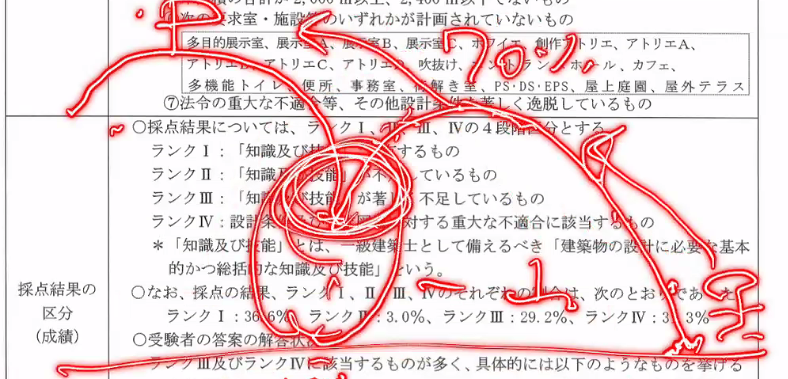 ⑥次の要求室・施設等のいずれかが計画されていないもの
多目的展示室、展示室A、展示室B、展示室C、ホワイエ、創作アトリエ、アトリエA、
アトリエ、アトリエC、アトリエD、吹抜け、エントランスホール、カフェ、
多機能トイレ、便所、事務室、荷解き室、PS・DS・EPS、屋上庭園、屋外テラス
⑦法令の重大な不適合等、その他設計条件を著しく逸脱しているもの
70%
採点結果の
区分
(成績)
○採点結果については、ランクⅠ、Ⅱ、Ⅲ、Ⅳの4段階区分とする。
ランクⅠ:「知識及び技能」を有するもの
ランクⅡ:「知識及び技能」が不足しているもの
ランクⅢ:「知識及び技能」が著しく不足しているもの
ランクⅣ:設計条件及び に対する重大な不適合に該当するもの
*「知識及び技能」とは、一級建築士として備えるべき「建築物の設計に必要な基本
的かつ総括的な知識及び技能」をいう。
○なお、採点の結果、ランクⅠ、Ⅱ、Ⅲ、Ⅳのそれぞれの割合は、次のとおりであった。
ランクⅠ:36.6%、ランクⅡ:3.0%、ランクⅢ:29.2%、ランクⅣ:3 %
○受験者の答案の解答状況
ランクⅢ及びランクⅣに該当するものが多く、具体的には以下のようなものを挙げる